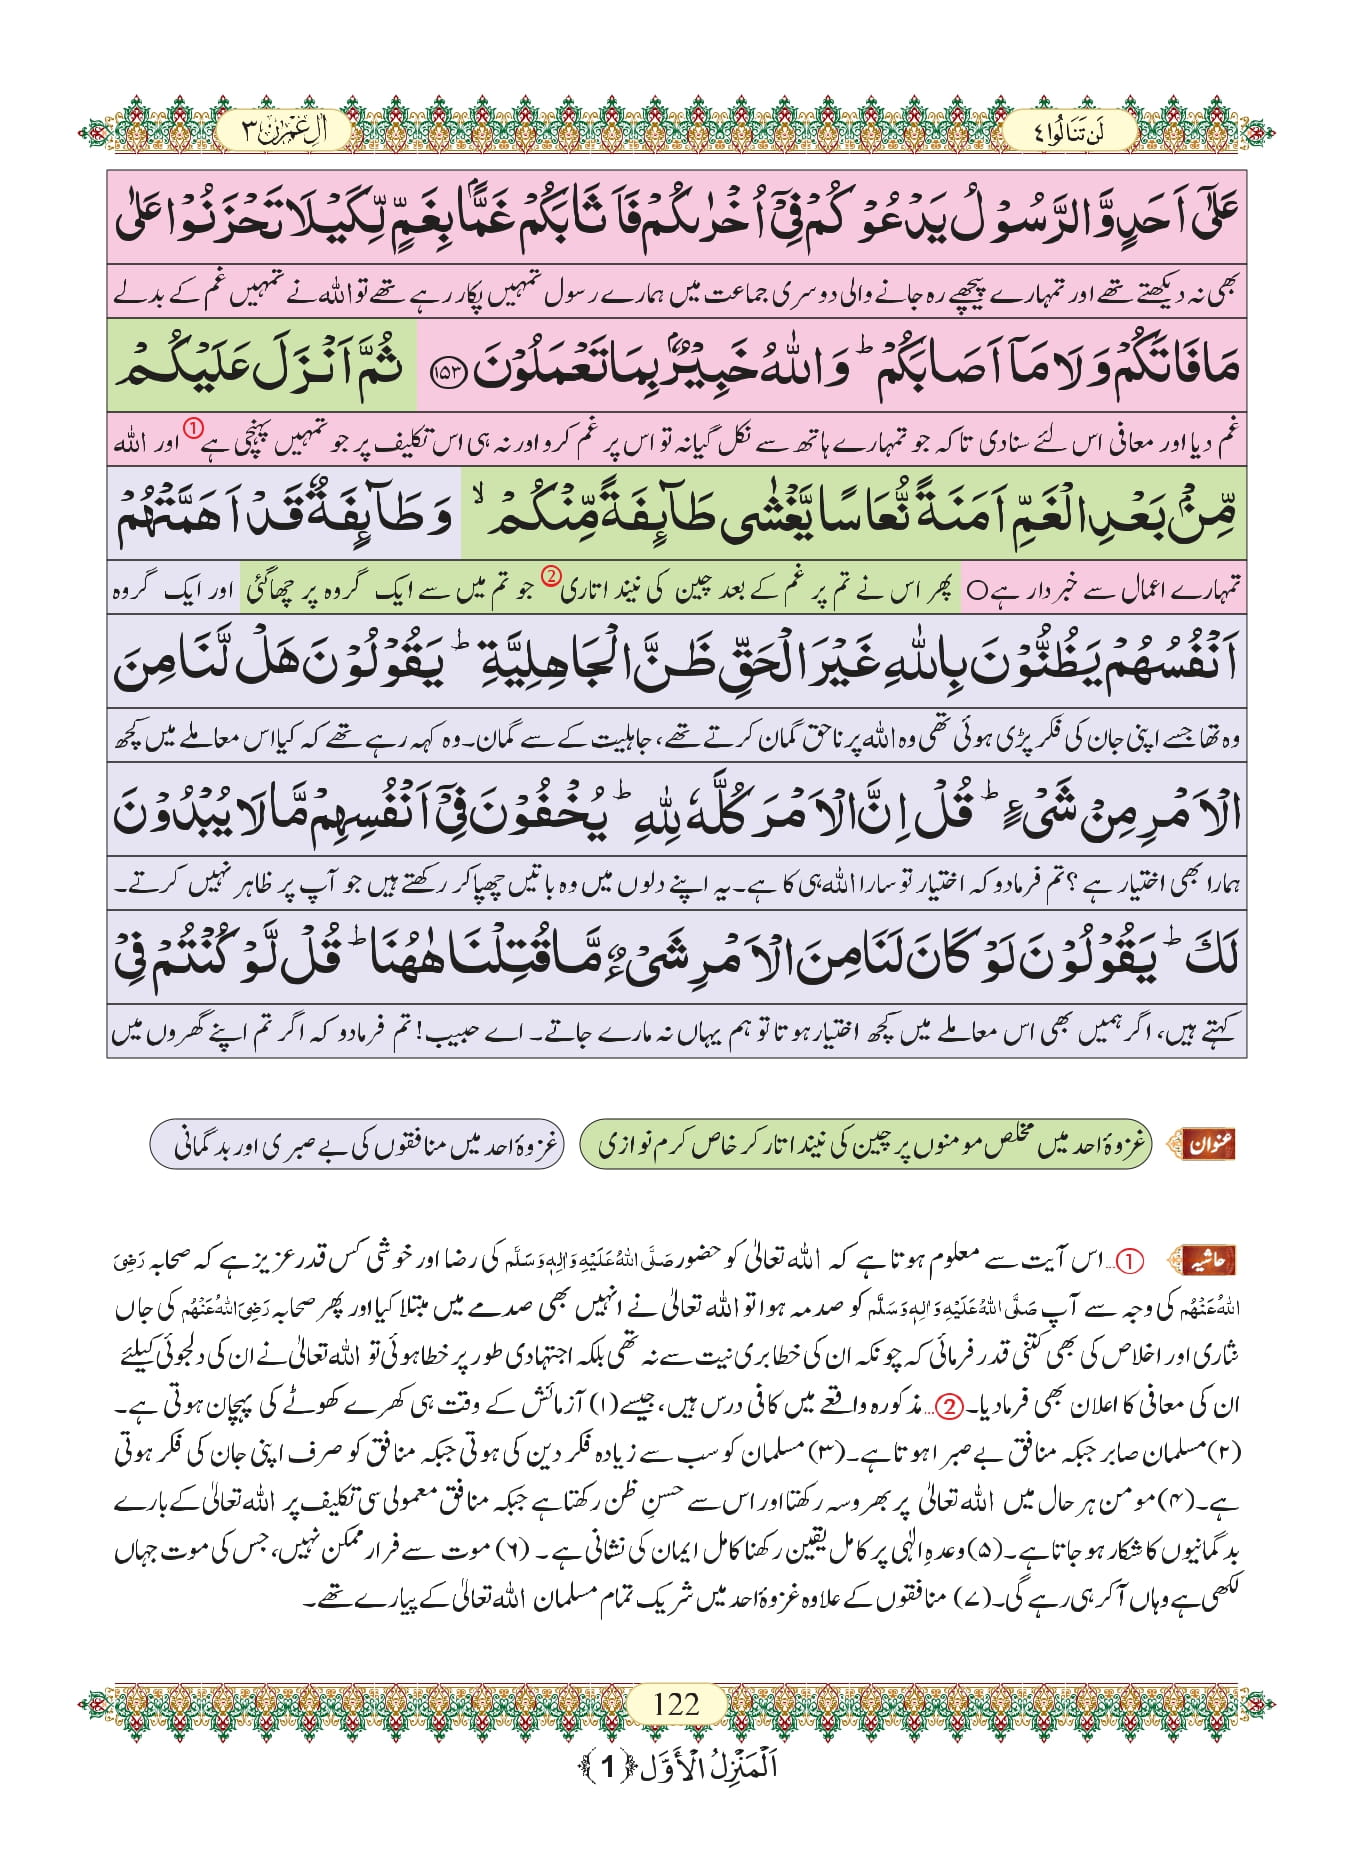 لَنۡ تَنَالُوا ٤
اٰلِ عِمۡرٰن ٣
عَلٰٓى اَحَدٍ وَّ الرَّسُوۡلُ یَدۡعُوۡكُمۡ فِیۡۤ اُخۡرٰىكُمۡ فَاَثَابَكُمۡ غَمًّۢا بِغَمٍّ لِّكَیۡلَا تَحۡزَنُوۡا عَلٰى
بھی نہ دیکھتے تھے اور تمہارے پیچھے رہ جانے والی دوسری جماعت میں ہمارے رسول تمہیں پکار رہے تھے تو اللہ نے تمہیں غم کے بدلے
مَا فَاتَكُمۡ وَ لَا مَاۤ اَصَابَكُمۡ ؕ وَ اللّٰهُ خَبِیۡرٌۢ بِمَا تَعۡمَلُوۡنَ ﴿۱۵۳﴾ ثُمَّ اَنۡزَلَ عَلَیۡكُمۡ
غم دیا اور معافی اس لئے سنادی تاکہ جو تمہارے ہاتھ سے نکل گیا نہ تو اس پر غم کرو اور نہ ہی اس تکلیف پر جو تمہیں پہنچی ہے ① اور اللہ
مِّنۡۢ بَعۡدِ الۡغَمِّ اَمَنَةً نُّعَاسًا یَّغۡشٰى طَآىِٕفَةً مِّنۡكُمۡ ۙ وَ طَآىِٕفَةٌ قَدۡ اَهَمَّتۡهُمۡ
تمہارے اعمال سے خبردار ہے ○ پھر اس نے تم پر غم کے بعد چین کی نیند اتاری ② جو تم میں سے ایک گروہ پر چھاگئی اور ایک گروہ
اَنۡفُسُهُمۡ یَظُنُّوۡنَ بِاللّٰهِ غَیۡرَ الۡحَقِّ ظَنَّ الۡجَاهِلِیَّةِ ؕ یَقُوۡلُوۡنَ هَلۡ لَّنَا مِنَ
وہ تھا جسے اپنی جان کی فکر پڑی ہوئی تھی وہ اللہ پر ناحق گمان کرتے تھے، جاہلیت کے سے گمان۔ وہ کہہ رہے تھے کہ کیا اس معاملے میں کچھ
الۡاَمۡرِ مِنۡ شَیۡءٍ ؕ قُلۡ اِنَّ الۡاَمۡرَ كُلَّهٗ لِلّٰهِ ؕ یُخۡفُوۡنَ فِیۡۤ اَنۡفُسِهِمۡ مَّا لَا یُبۡدُوۡنَ
ہمارا بھی اختیار ہے؟ تم فرمادو کہ اختیار تو سارا اللہ ہی کا ہے۔ یہ اپنے دلوں میں وہ باتیں چھپا کر رکھتے ہیں جو آپ پر ظاہر نہیں کرتے۔
لَكَ ؕ یَقُوۡلُوۡنَ لَوۡ كَانَ لَنَا مِنَ الۡاَمۡرِ شَیۡءٌ مَّا قُتِلۡنَا هٰهُنَا ؕ قُلۡ لَّوۡ كُنۡتُمۡ فِیۡ
کہتے ہیں، اگر ہمیں بھی اس معاملے میں کچھ اختیار ہوتا تو ہم یہاں نہ مارے جاتے۔ اے حبیب! تم فرمادو کہ اگر تم اپنے گھروں میں
عنوان غزوۂ احد میں مخلص مومنوں پر چین کی نیند اتار کر خاص کرم نوازی غزوۂ احد میں منافقوں کی بے صبری اور بدگمانی
حاشیہ ①... اس آیت سے معلوم ہوتا ہے کہ اللہ تعالیٰ کو حضور صَلَّی اللہُ عَلَیْہِ وَاٰلِہٖ وَسَلَّم کی رضا اور خوشی کس قدر عزیز ہے کہ صحابہ رَضِیَ
اللہُ عَنْہُم کی وجہ سے آپ صَلَّی اللہُ عَلَیْہِ وَاٰلِہٖ وَسَلَّم کو صدمہ ہوا تو اللہ تعالیٰ نے انہیں بھی صدمے میں مبتلا کیا اور پھر صحابہ رَضِیَ اللہُ عَنْہُم کی جاں
نثاری اور اخلاص کی بھی کتنی قدر فرمائی کہ چونکہ ان کی خطا بری نیت سے نہ تھی بلکہ اجتہادی طور پر خطا ہوئی تو اللہ تعالیٰ نے ان کی دلجوئی کیلئے
ان کی معافی کا اعلان بھی فرمادیا۔ ②... مذکورہ واقعے میں کافی درس ہیں، جیسے (۱) آزمائش کے وقت ہی کھرے کھوٹے کی پہچان ہوتی ہے۔
(۲) مسلمان صابر جبکہ منافق بے صبرا ہوتا ہے۔ (۳) مسلمان کو سب سے زیادہ فکر دین کی ہوتی جبکہ منافق کو صرف اپنی جان کی فکر ہوتی
ہے۔ (۴) مومن ہر حال میں اللہ تعالیٰ پر بھروسہ رکھتا اور اس سے حسنِ ظن رکھتا ہے جبکہ منافق معمولی سی تکلیف پر اللہ تعالیٰ کے بارے
بدگمانیوں کا شکار ہو جاتا ہے۔ (۵) وعدہِ الٰہی پر کامل یقین رکھنا کامل ایمان کی نشانی ہے۔ (۶) موت سے فرار ممکن نہیں، جس کی موت جہاں
لکھی ہے وہاں آکر ہی رہے گی۔ (۷) منافقوں کے علاوہ غزوۂ احد میں شریک تمام مسلمان اللہ تعالیٰ کے پیارے تھے۔
122
اَلۡمَنۡزِلُ الۡاَوَّل ﴿1﴾